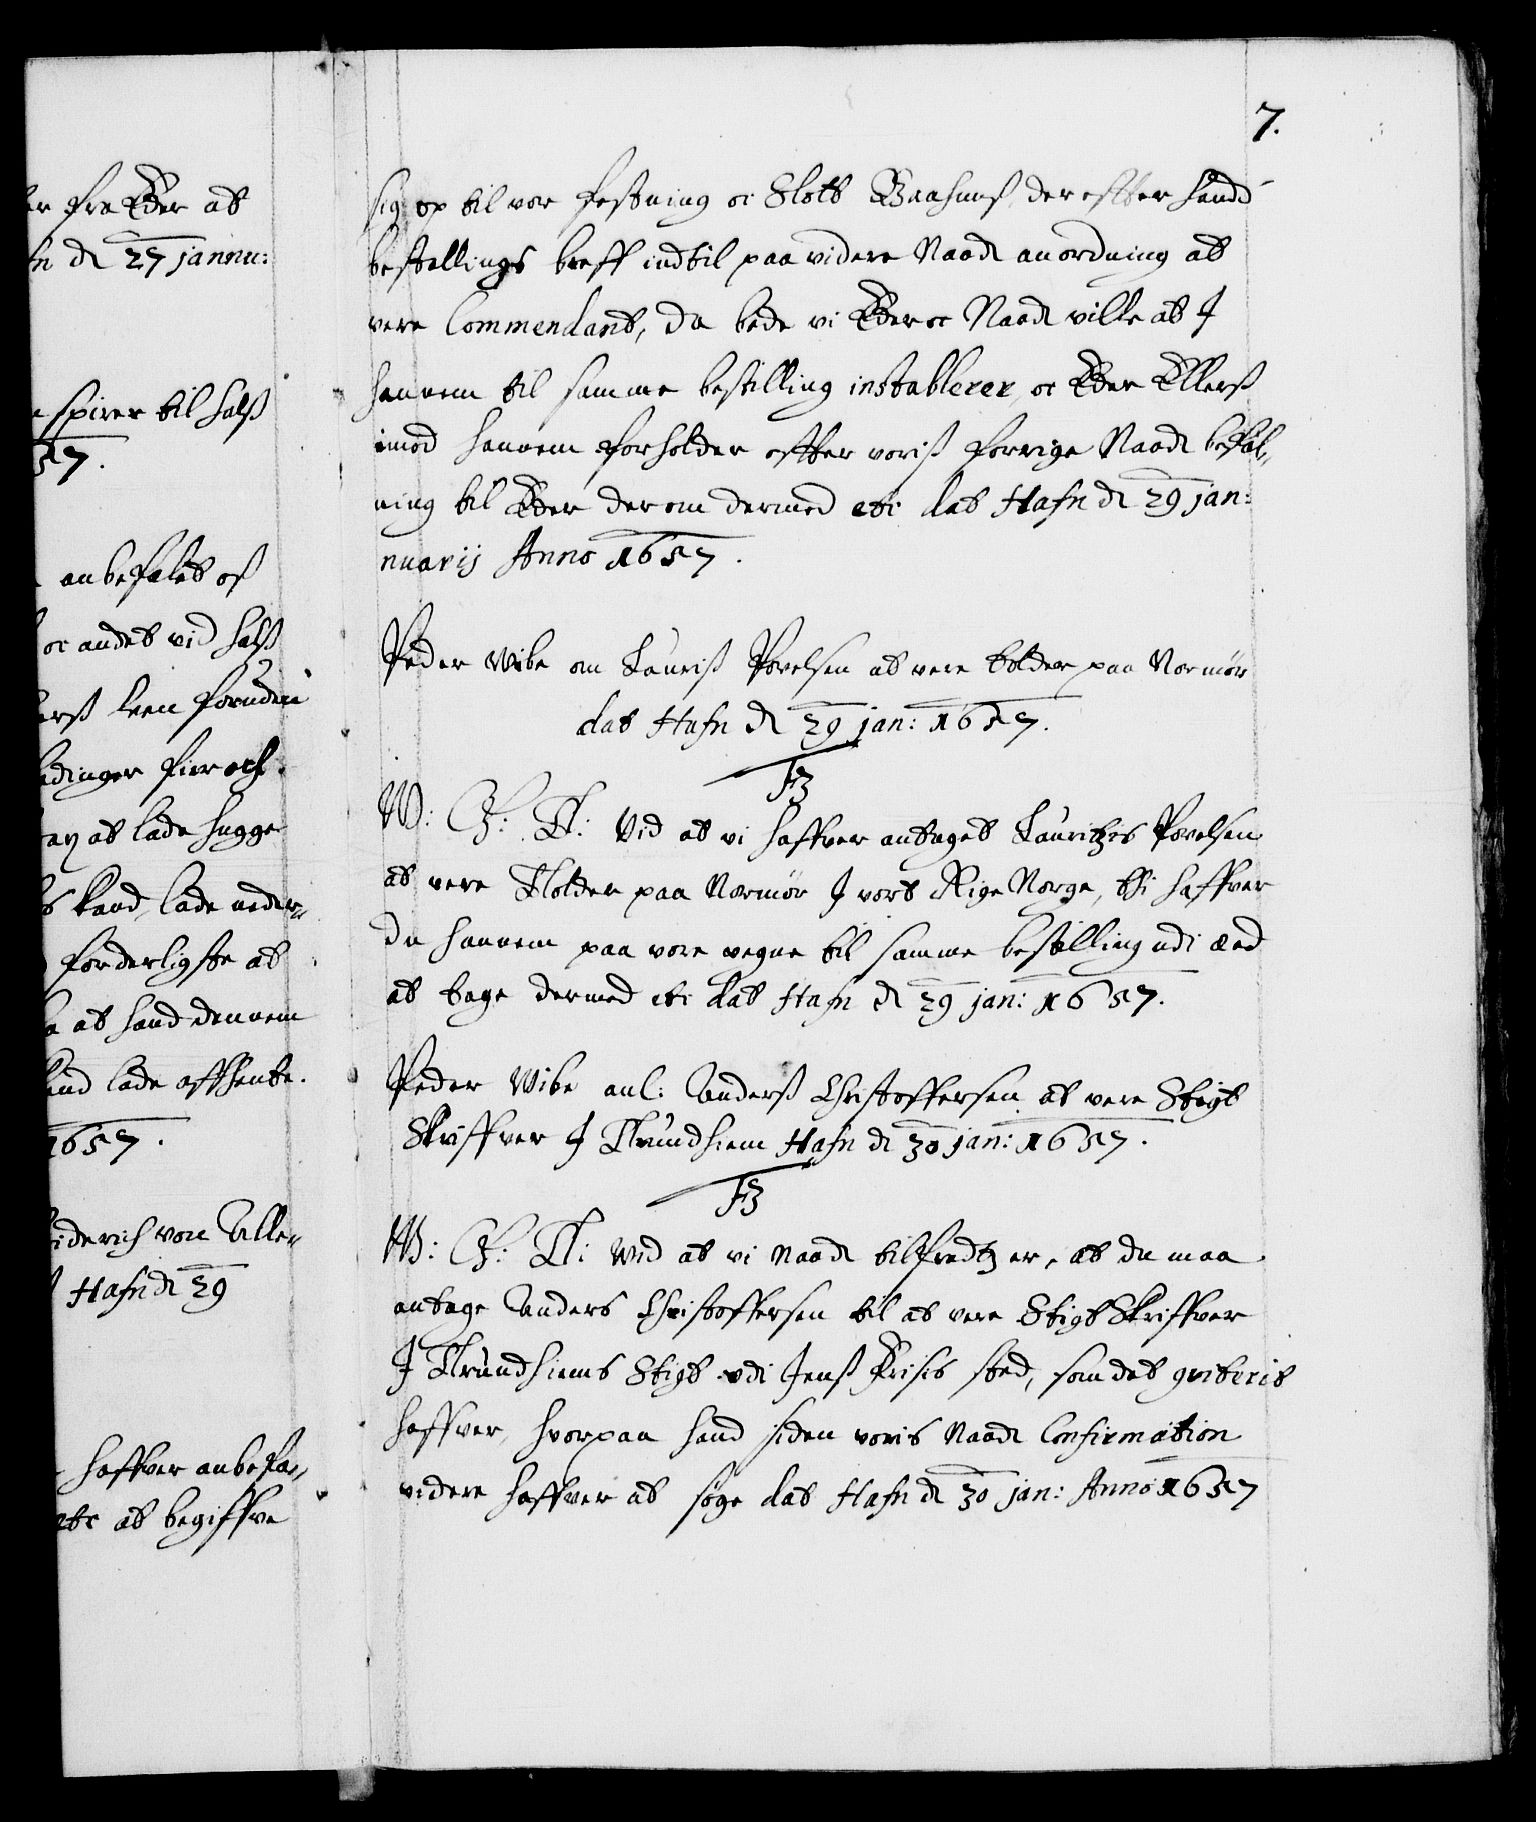 er fra Eder at
fn dn 27 jannu:
spirer til halß
57.
anbefalet oß
oc andet vid halß
erß leen foruden
dinger fire och
at lade hugge
kand, lade neder„
forderligste at
at hand dennem
and lade affhente.
1657.
iderich von Alle„
Hafn dn 29
haffver anbefa„
etc at begiffve
7.
sig op til vor festning oc Slott Baahuuß, der effter hands
bestellings breff indtil paa videre Naadn anordning at
vere Commendant, da bede vi Eder oc Naadn ville at I
hannem til samme bestilling instablerer, oc Eder Ellerß
imod hannem forholder effter voriß forrige Naadn befal„
ning til Eder der om dermed etc dat Hafn dn 29 jan:
nuarij Anno 1657.
Peder Wibe om Lauriß Povelsen at vere tolder paa Normør
dat Hafn dn 29 jan: 1657.
F3
W: G: T: Vid at vi haffver antaget Lauritzis Povelsen
at vere Tolder paa Normør I vort Rige Norge, Thi haffver
du hannem paa vore vegne til samme bestilling udi æed
at tage dermed etc dat Hafn dn 29 jan: 1657.
Peder Wibe anl: Anderß Christoffersen at vere Stigt
Skriffver I Trundhiem Hafn dn 30 jan: 1657.
F3
W: G: T: Wid at vi Naadn tilfredtz er, at du maa
antage Anders Christoffersen til at vere Stigt Skriffver
I Trundhiems Stigt udi Jenß Frisis sted, som det qviterit
haffver, hvorpaa hand siden voris Naadn Confirmation
videre haffver at søge dat Hafn dn 30 jan: Anno 1657